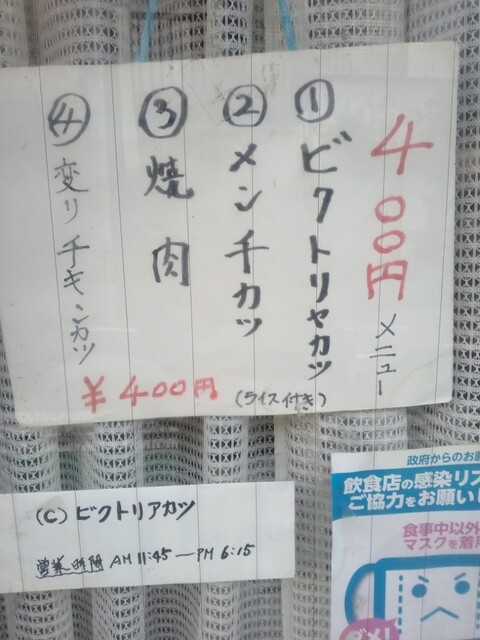 400円メニュー
① ビクトリヤカツ
② メンチカツ
③ 焼肉
④ 変りチキンカツ
¥400円
(ライス付き)
(C) ビクトリアカツ
営業時間 AM 11:45 — PM 6:15
政府からのお願
飲食店の感染リス
ご協力をお願いし
食事中以外
マスクを着用